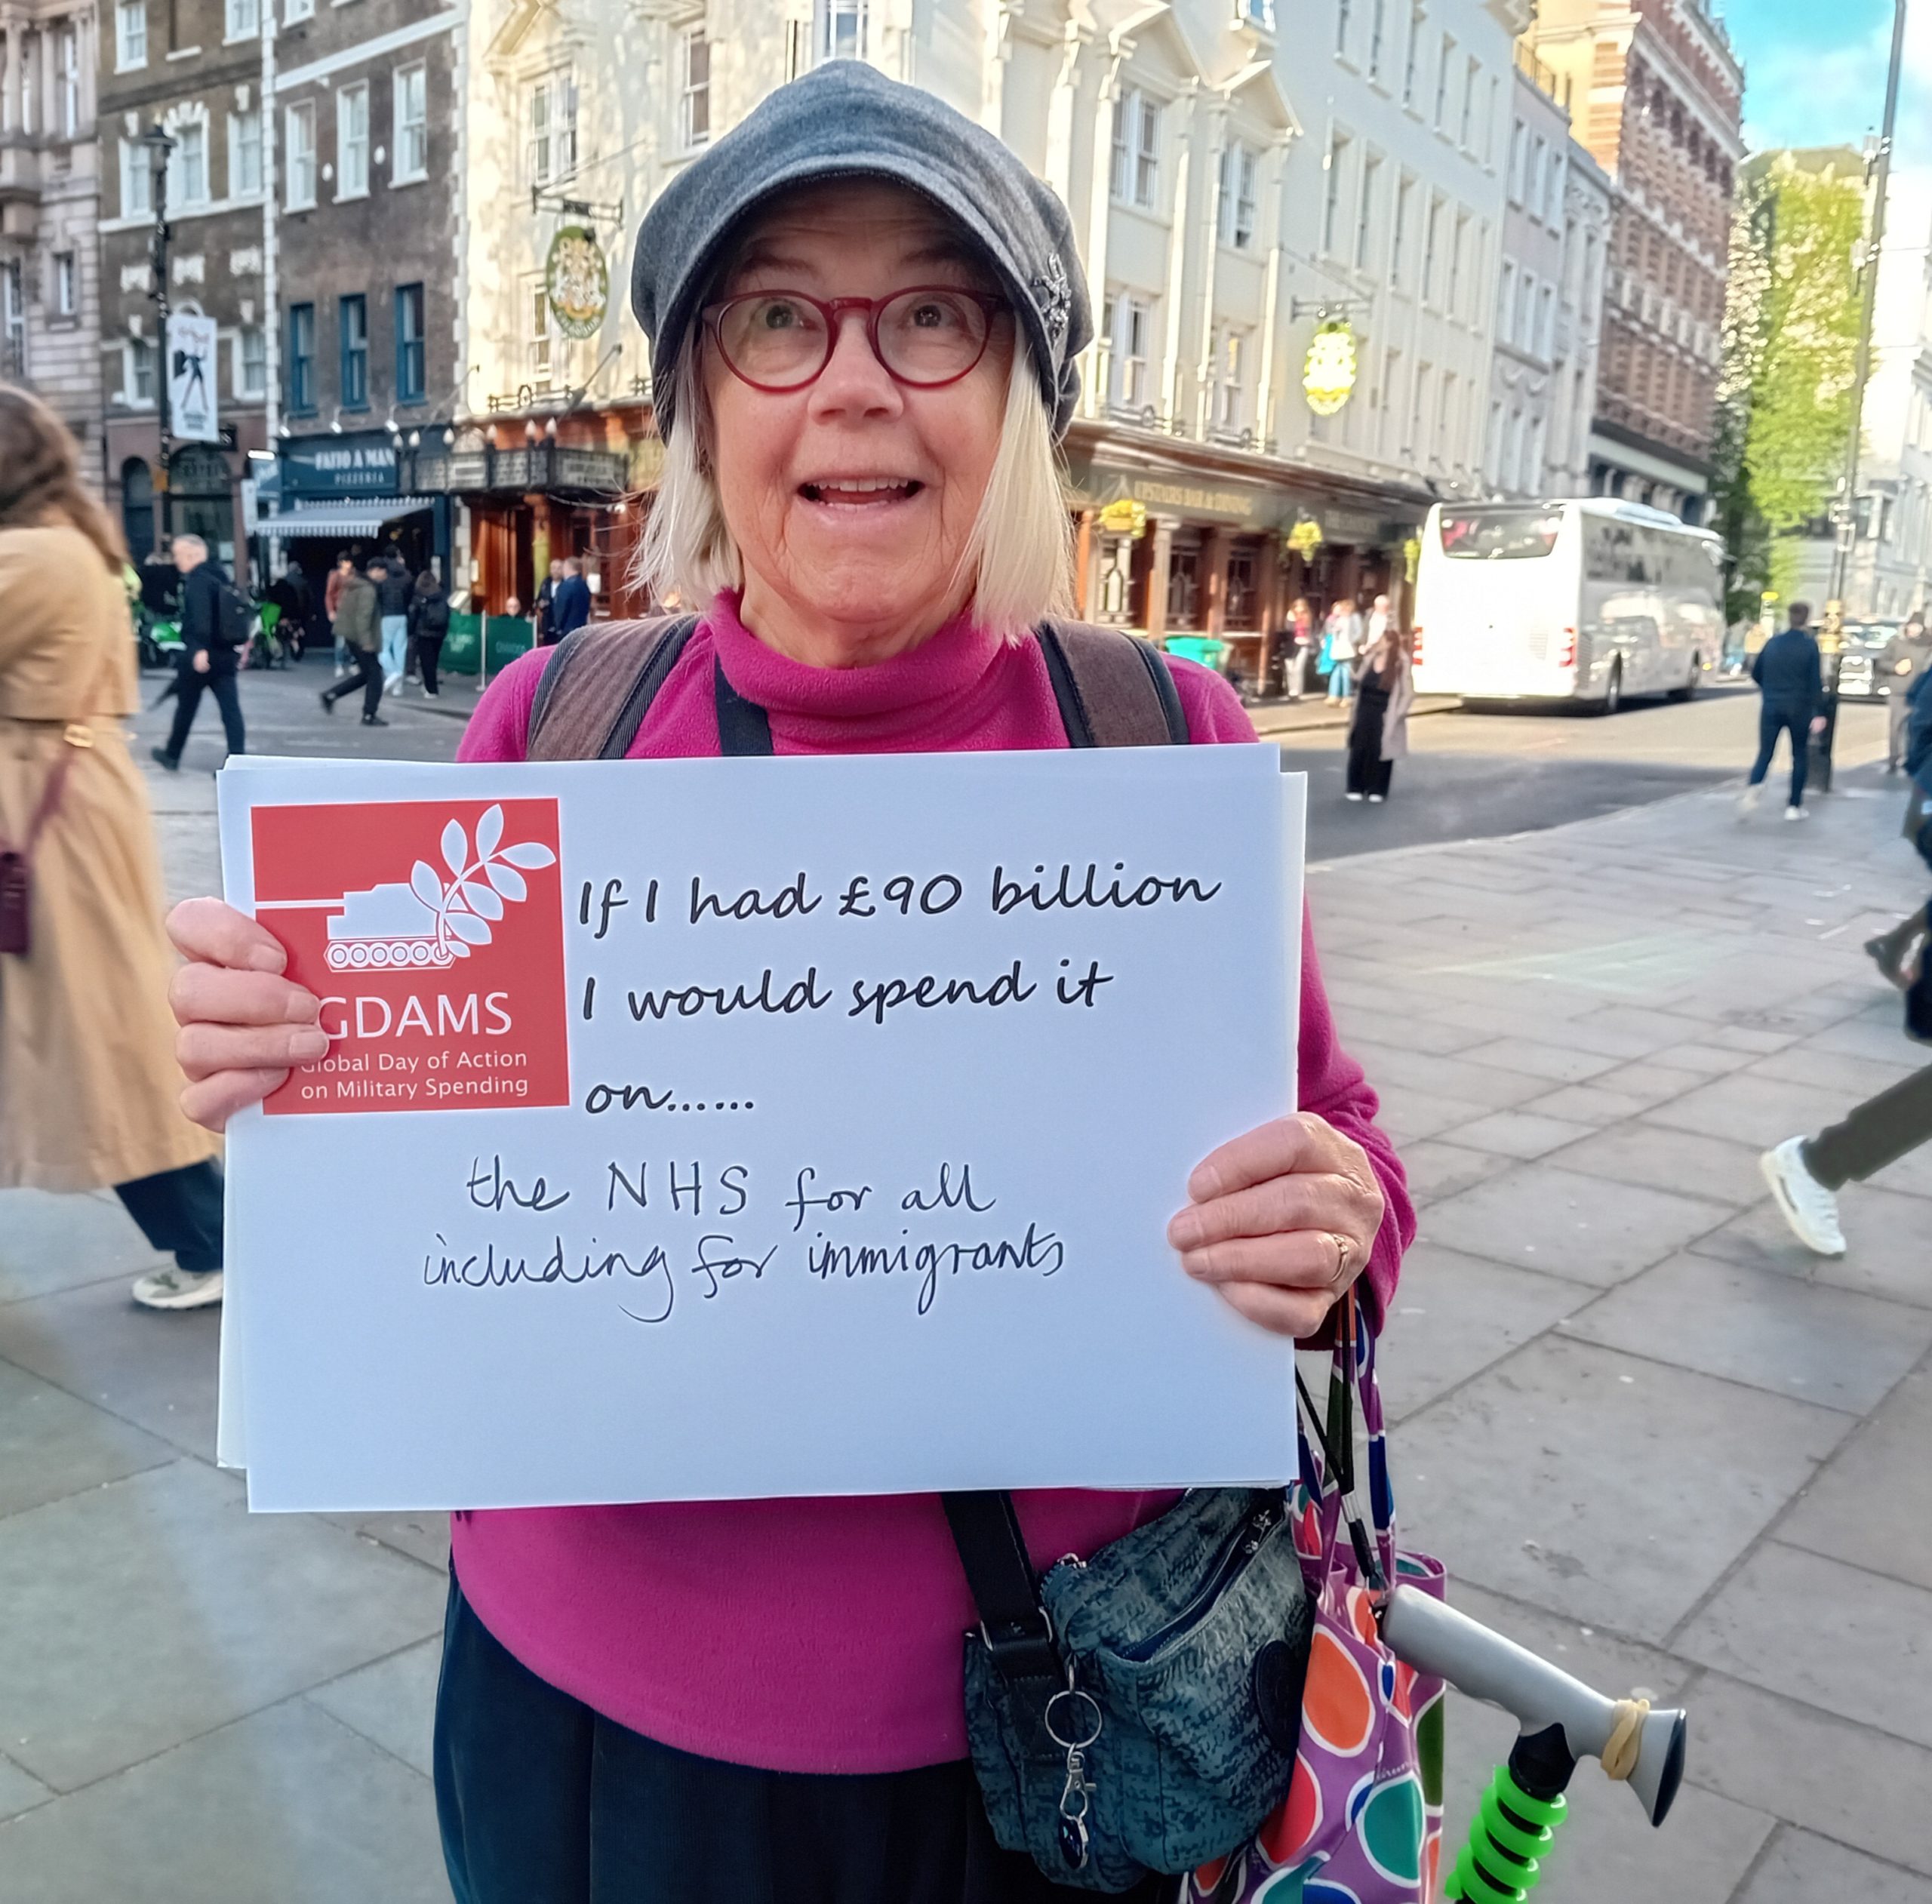 FATTO A MAN
PIZZERIA
UPSTAIRS BAR & DINING
GDAMS
Global Day of Action
on Military Spending
If I had £90 billion
I would spend it
on......
the NHS for all
including for immigrants